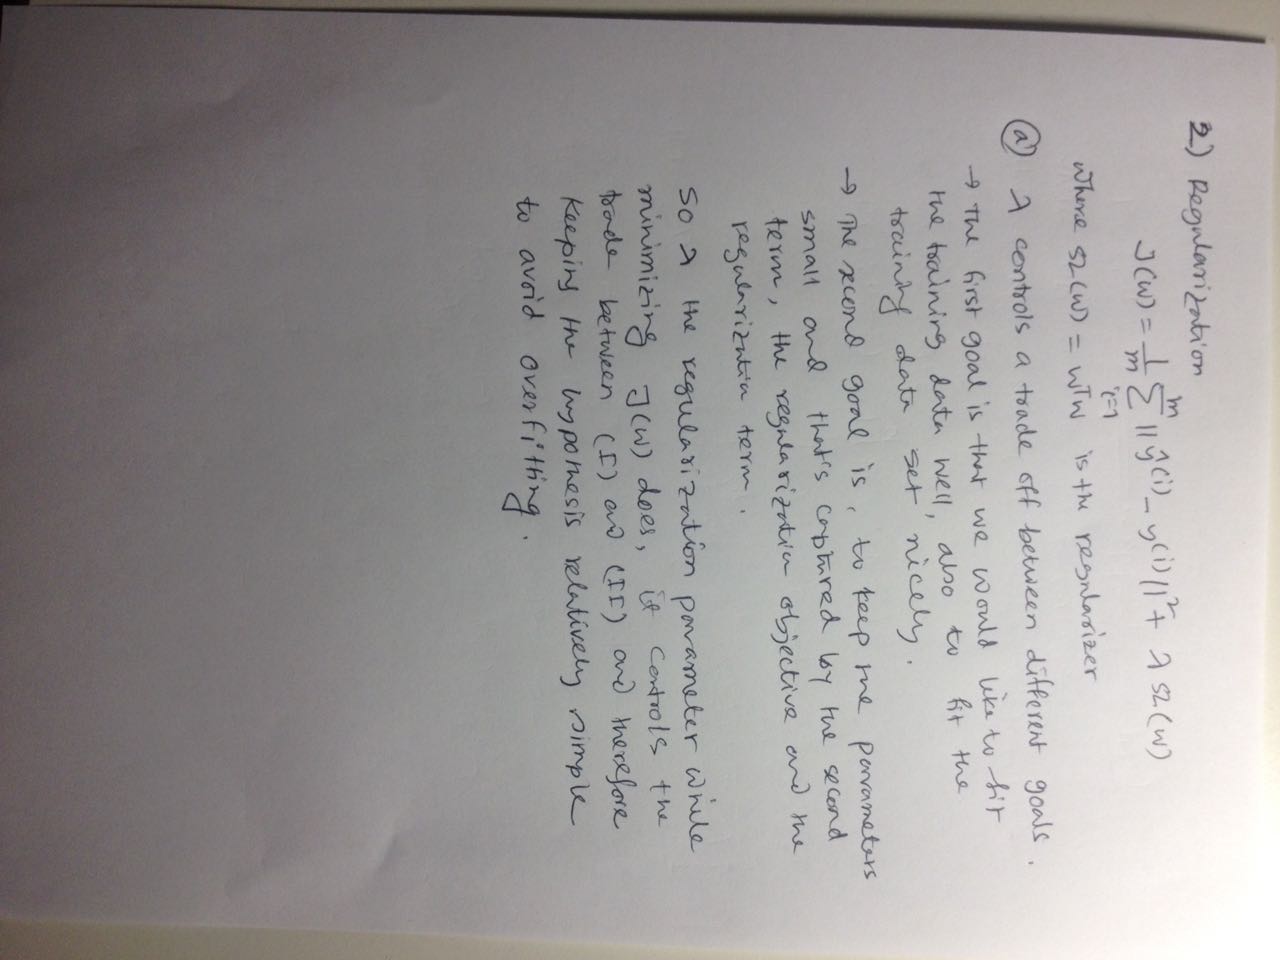 2) Regularization
J(W) = 1/m Σ_{i=1}^{m} || ŷ^(i) - y^(i) ||² + λ Ω(w)
where Ω(w) = wᵀw is the regularizer
(a) λ controls a trade off between different goals.
→ The first goal is that we would like to fit
the training data well, also to fit the
training data set nicely.
→ The second goal is, to keep the parameters
small and that's captured by the second
term, the regularization objective and the
regularization term.
So λ the regularization parameter while
minimizing J(W) does, it controls the
trade between (I) and (II) and therefore
keeping the hypothesis relatively simple
to avoid overfitting.